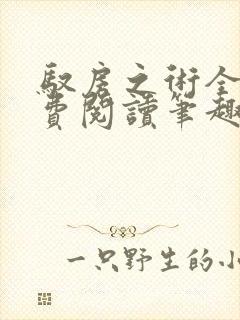 馭房之術全
費閱讀筆趣
一只野生的小